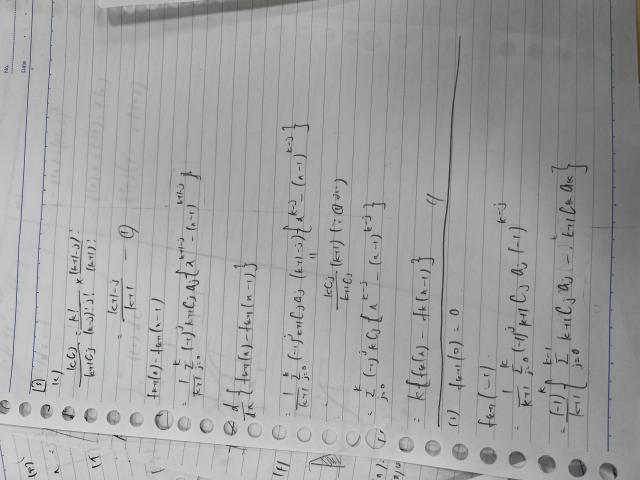 No.
Date
[3]
(1)
kCj / k+1Cj = k! / (k-j)! j! × (k+1-j)! j! / (k+1)!
= k+1-j / k+1 — ①
fk+1(x) - fk+1(x-1)
= 1/k+1 Σ_{j=0}^{k} (-1)^j k+1Cj aj { x^{k+1-j} - (x-1)^{k+1-j} }
d/dx { fk+1(x) - fk+1(x-1) }
= 1/k+1 Σ_{j=0}^{k} (-1)^j k+1Cj aj (k+1-j) { x^{k-j} - (x-1)^{k-j} }
kCj / k+1Cj (k+1) (∵ ①
= Σ_{j=0}^{k} (-1)^j kCj { x^{k-j} - (x-1)^{k-j} }
= k { fk(x) - fk(x-1) }
fk+1(0) = 0
fk+1(-1)
= 1/k+1 Σ_{j=0}^{k} (-1)^j k+1Cj aj (-1)^{k-j}
= (-1)^k / k+1 { Σ_{j=0}^{k-1} k+1Cj aj - k+1Ck ak }